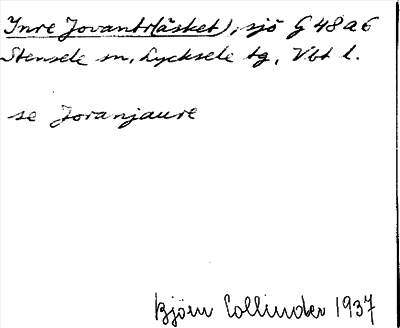 Inre Jovantträsket), sjö G 48 a 6
Stensele sn, Lycksele tg, Vbt l.
se Joranjaure
Björn Collinder 1937